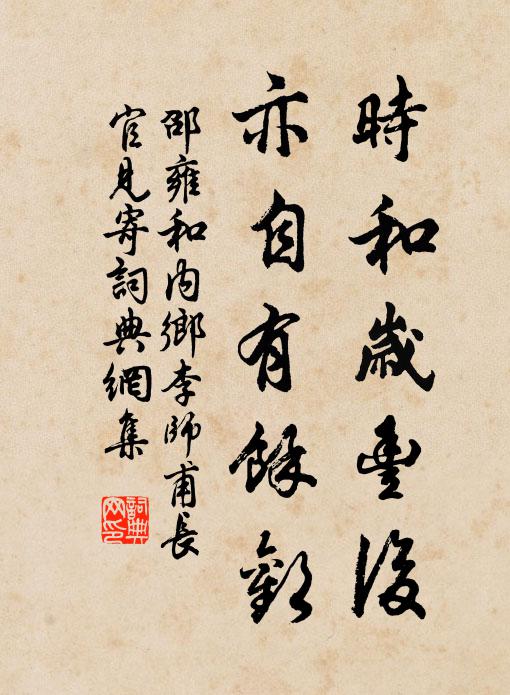 時和歲豐後
亦自有餘歡
邵雍和內鄉李師甫長
官見寄詞典網集
詞典
网印